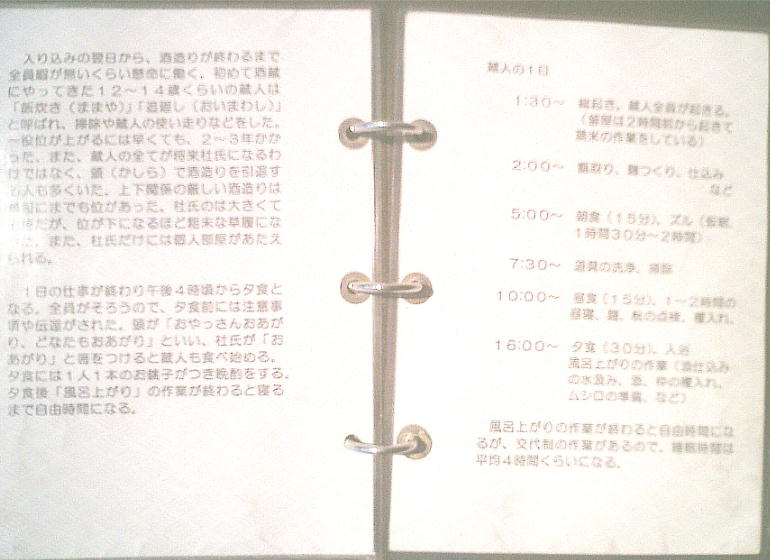 入り込みの翌日から、酒造りが終わるまで
全員暇が無いくらい懸命に働く。初めて酒蔵
にやってきた12〜14歳くらいの蔵人は
「飯炊き（ままや）」「追廻し（おいまわし）」
と呼ばれ、掃除や蔵人の使い走りなどをした。
一役位が上がるには早くても、2〜3年かか
った。また、蔵人の全てが将来杜氏になるわ
けではなく、頭（かしら）で酒造りを引退す
る人も多くいた。上下関係の厳しい酒造りは
にまでも位があった。杜氏のは大きくて
だが、位が下になるほど粗末な草履にな
った。また、杜氏だけには個人部屋があたえ
られる。
1日の仕事が終わり午後4時頃から夕食と
なる。全員がそろうので、夕食前には注意事
項や伝達がされた。頭が「おやっさんおあが
り、どなたもおあがり」といい、杜氏が「お
あがり」と箸をつけると蔵人も食べ始める。
夕食には1人1本のお銚子がつき晩酌をする。
夕食後「風呂上がり」の作業が終わると寝る
まで自由時間になる。
蔵人の1日
1:30〜 総起き。蔵人全員が起きる。
（釜屋は2時間前から起きて
蒸米の作業をしている）
2:00〜 麹取り、麹つくり、仕込み
など
5:00〜 朝食（15分）、ズル（仮眠、
1時間30分〜2時間）
7:30〜 道具の洗浄、掃除
10:00〜 昼食（15分）、1〜2時間の
昼寝、麹、の点検、櫂入れ、
16:00〜 夕食（30分）、入浴
風呂上がりの作業（添仕込み
の水汲み、添、枠の櫂入れ、
ムシロの準備、など）
風呂上がりの作業が終わると自由時間にな
るが、交代制の作業があるので、睡眠時間は
平均4時間くらいになる。